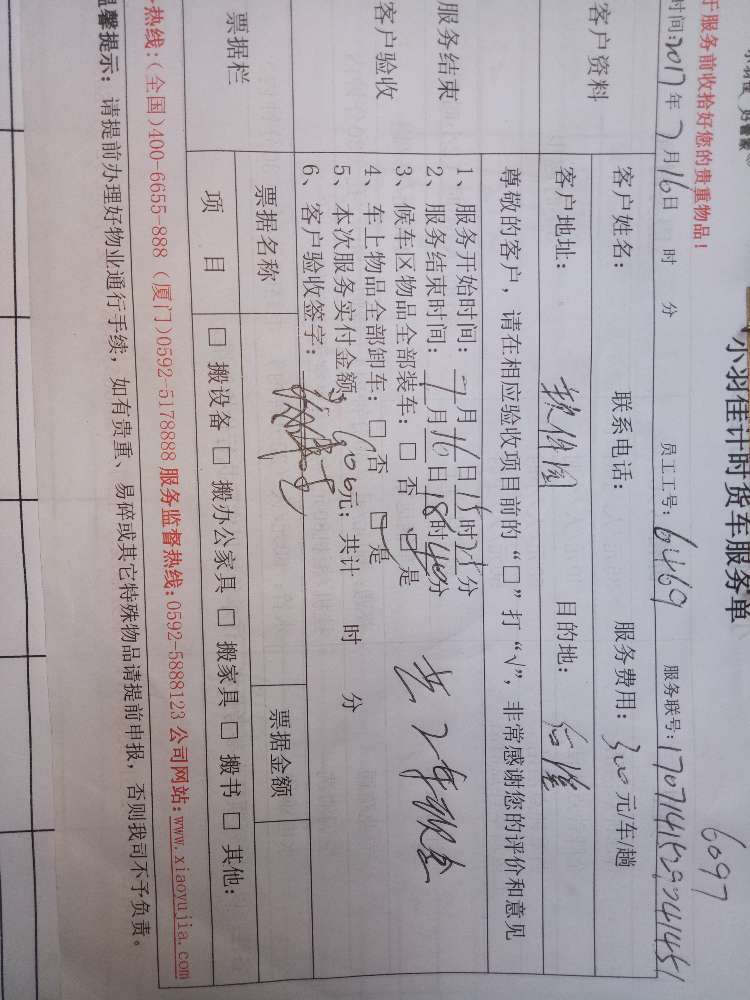 小羽佳计时货车服务单
6097
于服务前收拾好您的贵重物品！
时间:2017年7月16日 时 分 员工工号: 6469 服务联号: 170714152974145
客户资料
客户姓名: 联系电话: 服务费用: 300元/车/趟
客户地址: 软件园 目的地:
尊敬的客户，请在相应验收项目前的“□”打“√”，非常感谢您的评价和意见
服务结束
客户验收
1、服务开始时间: 7月16日15时25分
2、服务结束时间: 7月16日18时40分
3、候车区物品全部装车: □ 否 ☑ 是
4、车上物品全部卸车: □ 否 ☑ 是 共2车
5、本次服务实付金额: 600元; 共计 时 分
6、客户验收签字:
票据栏
票据名称 票据金额
项 目 □ 搬设备 □ 搬办公家具 □ 搬家具 □ 搬书 □ 其他:
热线:(全国)400-6655-888 (厦门)0592-5178888 服务监督热线:0592-5888123 公司网站:www.xiaoyujia.com
温馨提示: 请提前办理好物业通行手续，如有贵重、易碎或其它特殊物品请提前申报，否则我司不予负责。